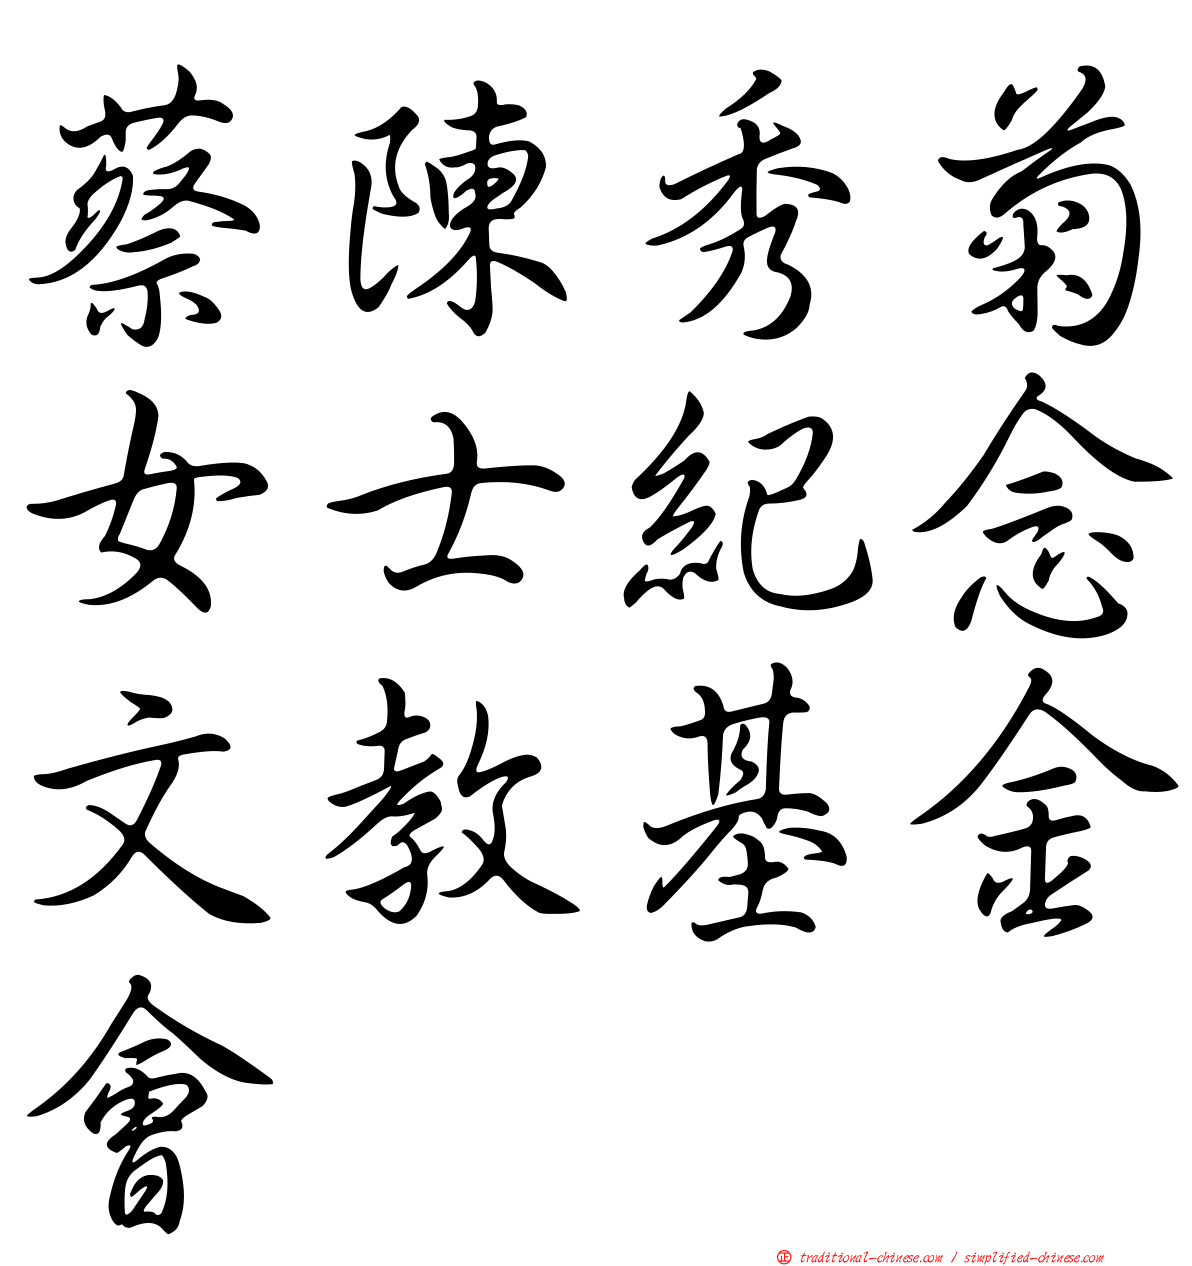 蔡陳秀菊
女士紀念
文教基金
會
正 traditional-chinese.com / simplified-chinese.com